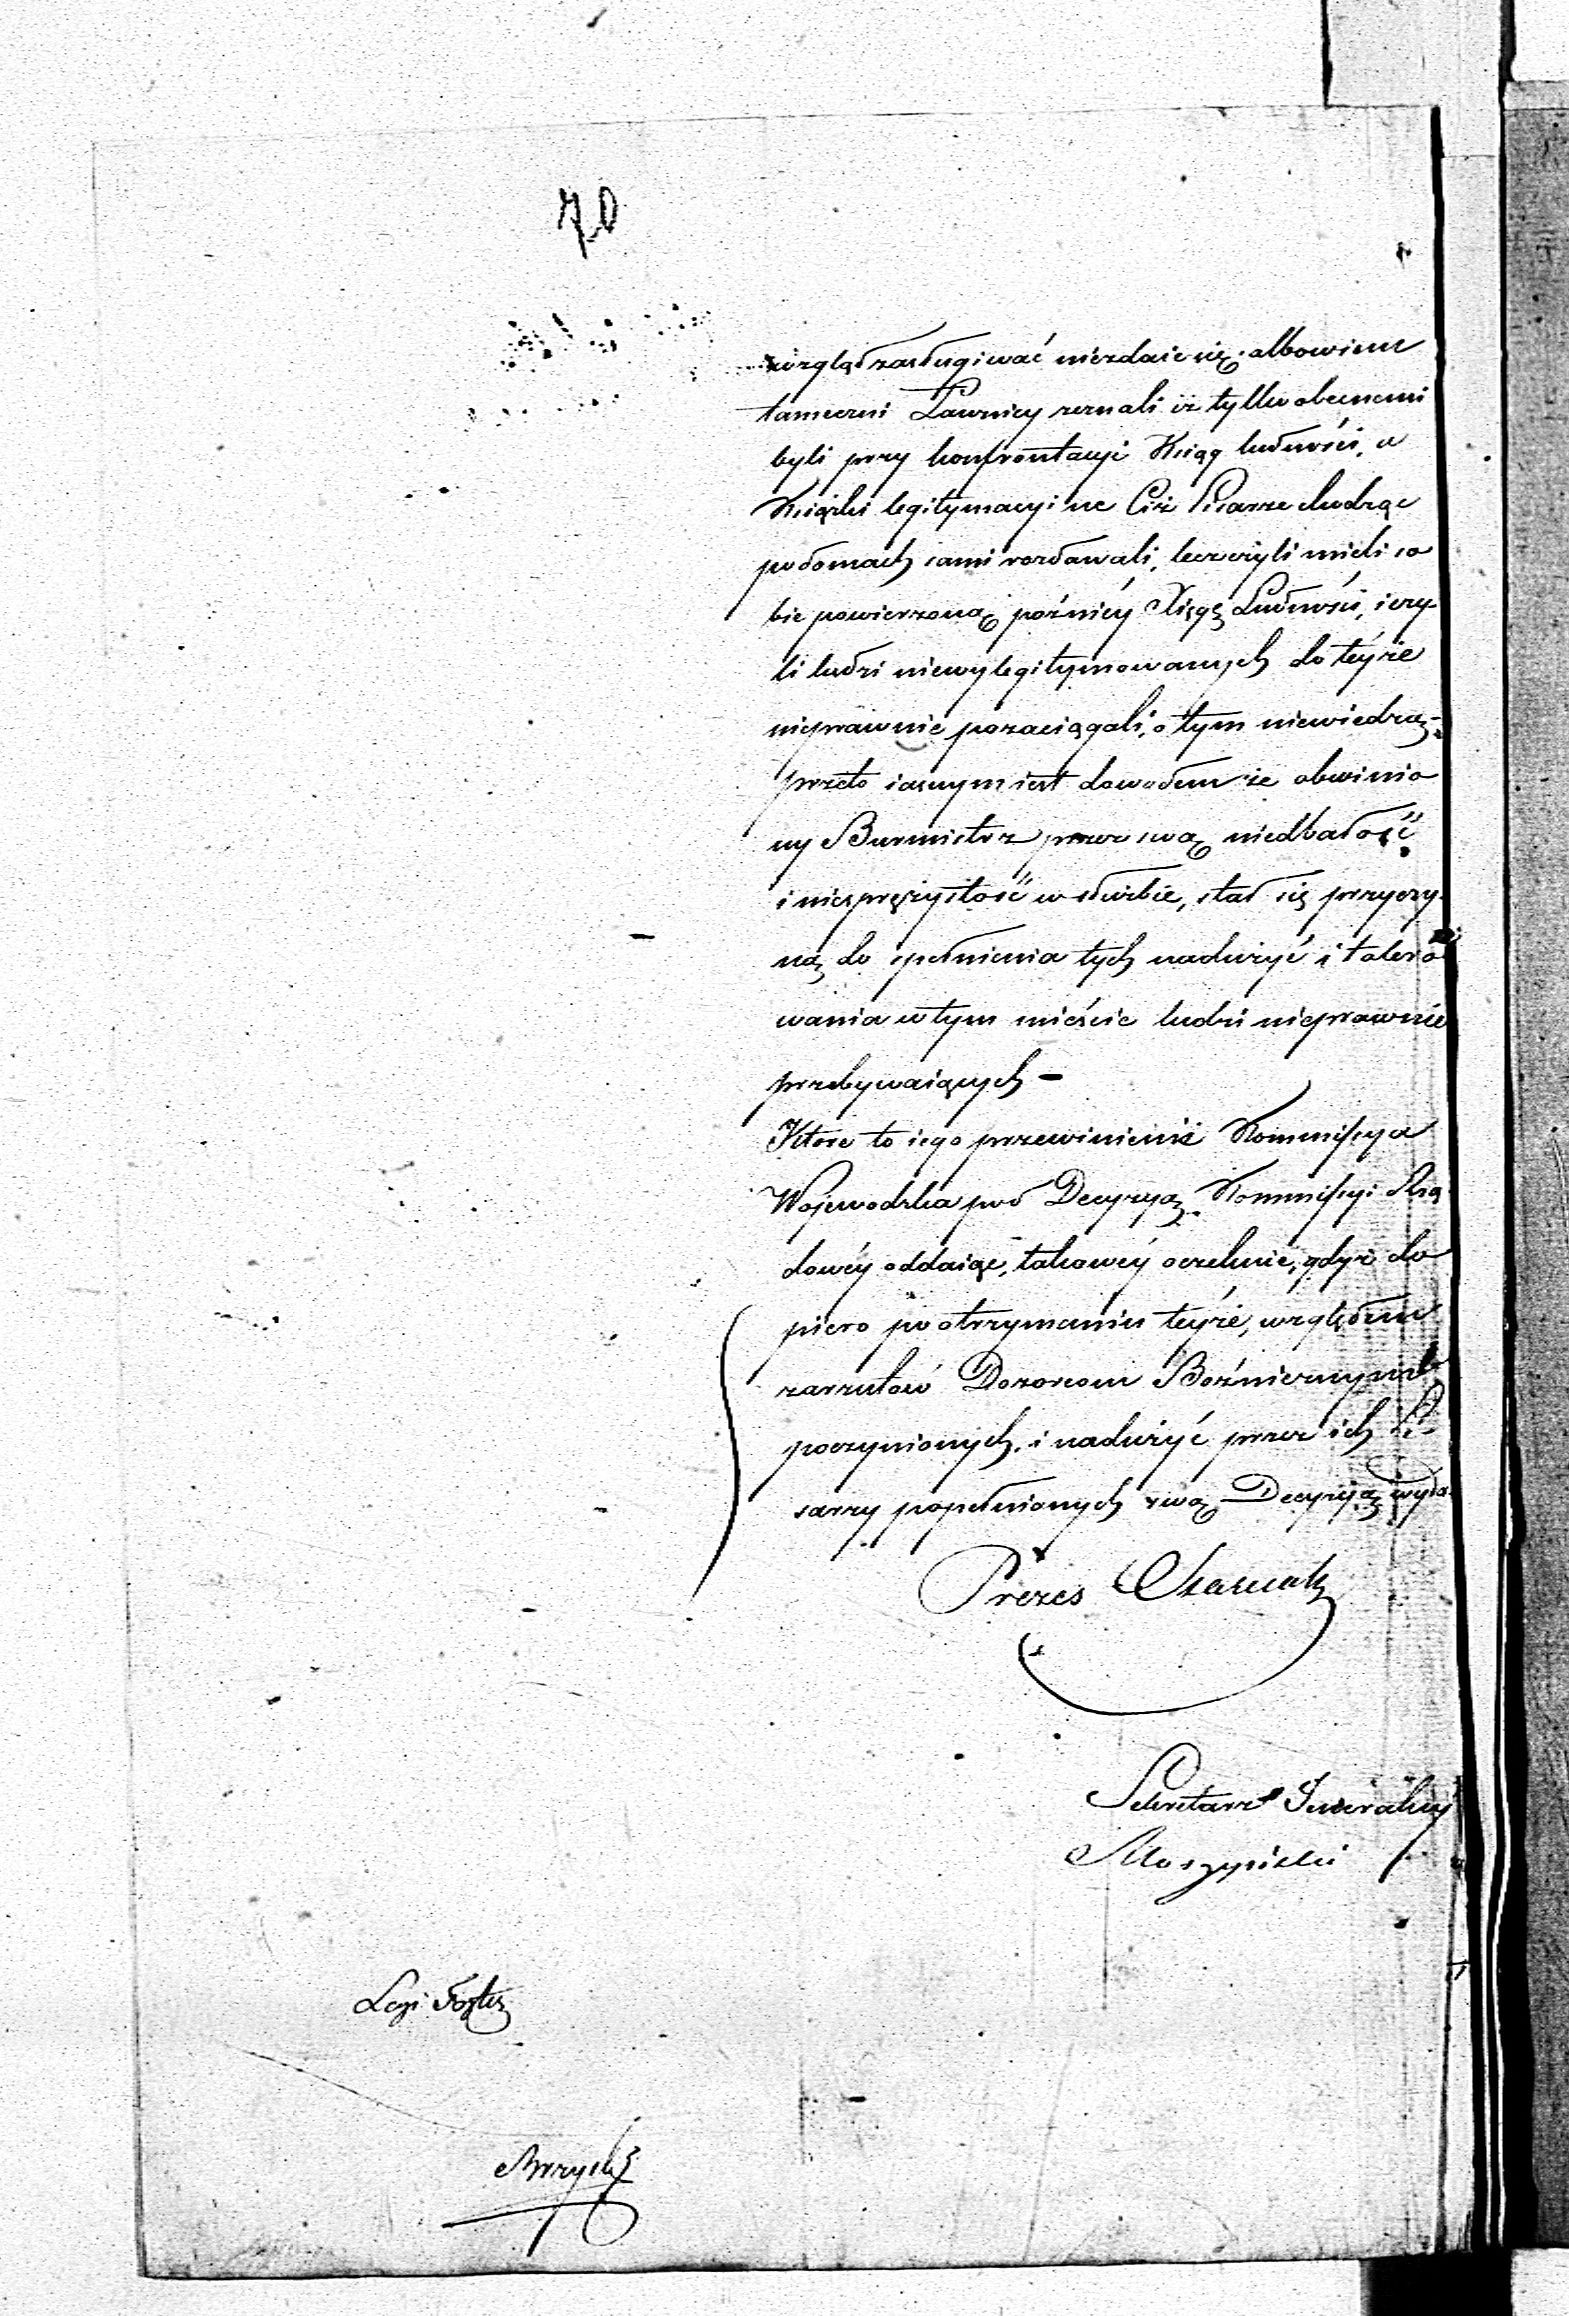 70
wzgląd zasługiwać niezdaie się. albowiem
tameczni Ławnicy zeznali iż tylko obecnemi
byli przy konfrontacyi Ksiąg ludności, a
Książki legitymacyine Ciż Pisarze chodząc
po domach sami rozdawali, lecz czyli mieli so
bie powierzoną poźniéy Xięgę Ludności, i czy
li ludzi niewylegitymowanych do téyże
nieprawnie pozaciągali, o tym niewiedzą,-
przeto iasnym iest dowodem że obwinio
ny Burmistrz przez swą niedbałość
i niesprężystość w służbie, stał się przyczy
ną do spełnienia tych nadużyć i tolero
wania w tym mieście ludzi nieprawnie
przebywaiących –
Które to iego przewinienie Kommissya
Wojewodzka pod Decyzyą Kommissyi Rzą
dowéy oddaiąc, takowéy oczekuie, gdyż do
piero po otrzymaniu téyże, względem
zarzutów Dozorcom Bożnicznym
poczynionych, i nadużyć przez ich Pi
sarzy popełnionych swą Decyzyą wyda
Prezes
Sekretarz Jeneralny